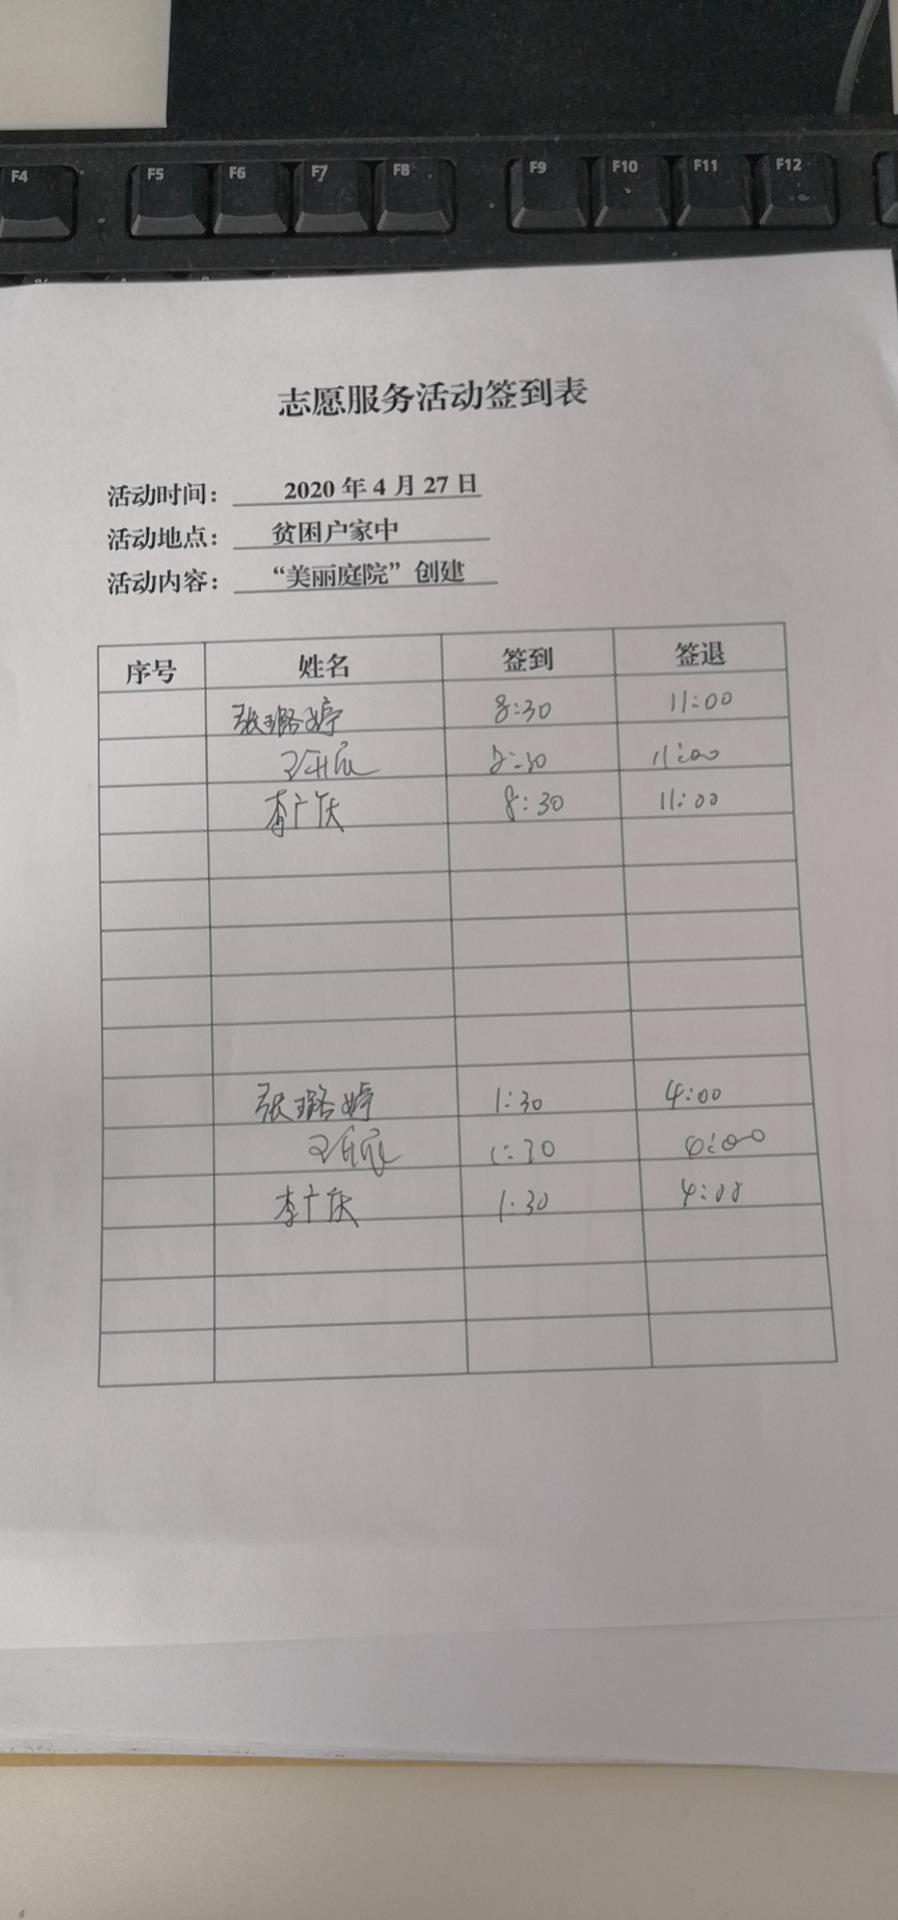 F4 F5 F6 F7 F8 F9 F10 F11 F12
志愿服务活动签到表
活动时间： 2020 年 4 月 27 日
活动地点： 贫困户家中
活动内容： “美丽庭院”创建
序号 姓名 签到 签退
张璐婷 8:30 11:00
8:30 11:00
李广庆 8:30 11:00
张璐婷 1:30 4:00
1:30 4:00
李广庆 1:30 4:00